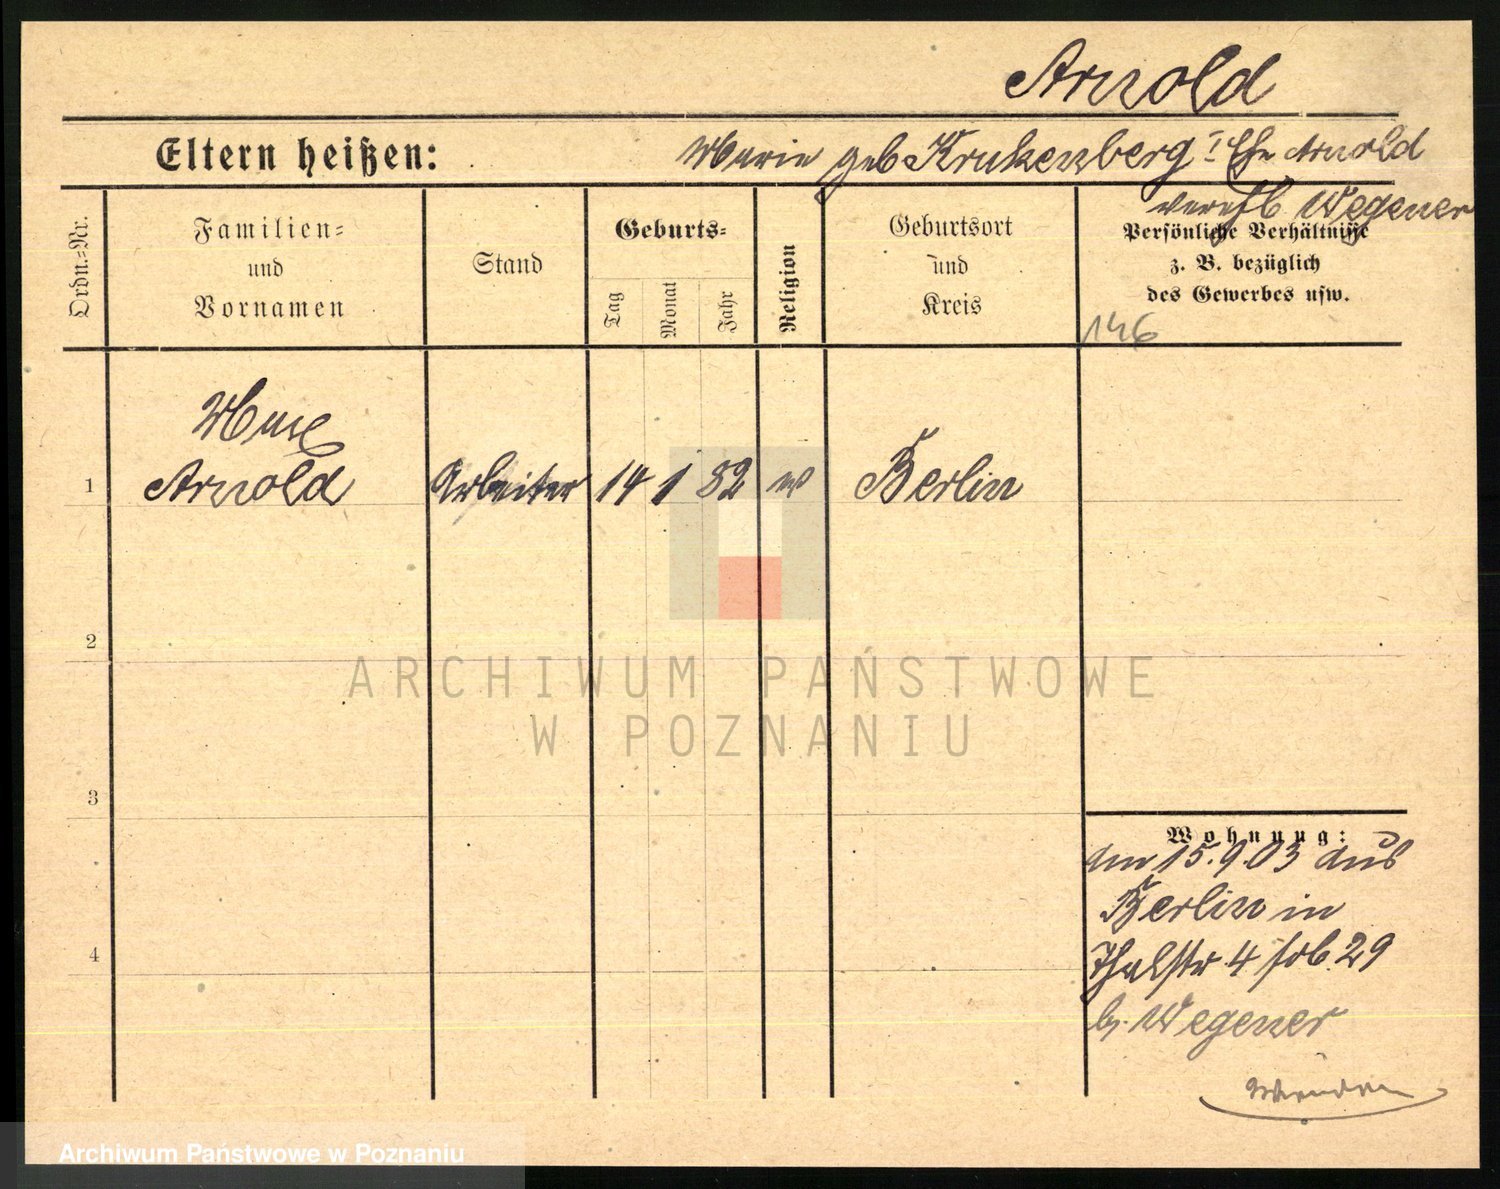 Arnold
Eltern heißen:
Marie geb Krukenberg I Ehe Arnold
verehl Wegener
Ordn.-Nr.
Familien-
und
Vornamen
Stand
Geburts-
Tag
Monat
Jahr
Religion
Geburtsort
und
Kreis
Persönliche Verhältnisse
z. B. bezüglich
des Gewerbes usw.
146
Max
1 Arnold Arbeiter 14 1 82 Berlin
2
3
4
Wohnung:
am 15.9.03 aus
Berlin in
Thalstr 4 29
Wegener
ARCHIWUM PAŃSTWOWE
W POZNANIU
Archiwum Państwowe w Poznaniu